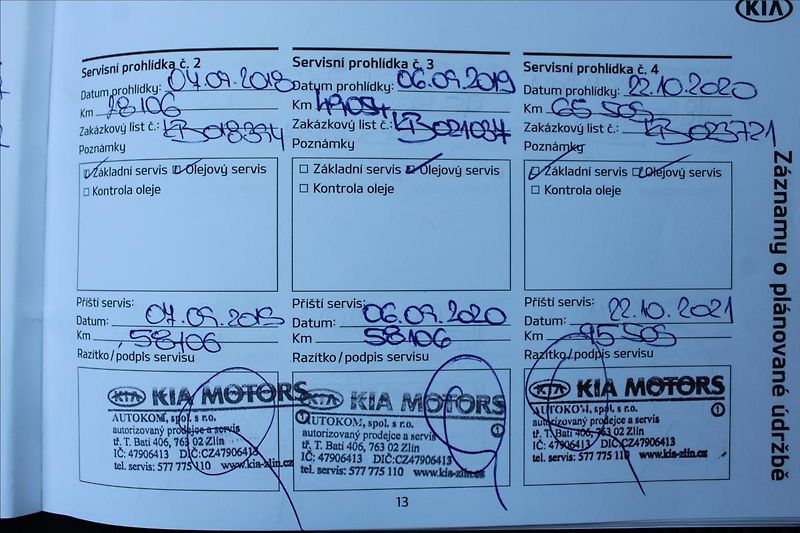 KIA
Servisní prohlídka č. 2
Datum prohlídky: 04.09.2018
Km 28106
Zakázkový list č.: KB018394
Poznámky
Základní servis Olejový servis
Kontrola oleje
Příští servis:
Datum: 04.09.2019
Km 58106
Razítko/podpis servisu
KIA MOTORS
AUTOKOM, spol. s r.o.
autorizovaný prodejce a servis
tř. T. Bati 406, 763 02 Zlín
IČ: 47906413 DIČ:CZ47906413
tel. servis: 577 775 110 www.kia-zlin.cz
Servisní prohlídka č. 3
Datum prohlídky: 06.09.2019
Km 49084
Zakázkový list č.: KB021037
Poznámky
Základní servis Olejový servis
Kontrola oleje
Příští servis:
Datum: 06.09.2020
Km 58106
Razítko/podpis servisu
KIA MOTORS
AUTOKOM, spol. s r.o.
autorizovaný prodejce a servis
tř. T. Bati 406, 763 02 Zlín
IČ: 47906413 DIČ:CZ47906413
tel. servis: 577 775 110 www.kia-zlin.cz
Servisní prohlídka č. 4
Datum prohlídky: 22.10.2020
Km 65505
Zakázkový list č.: KB023721
Poznámky
Základní servis Olejový servis
Kontrola oleje
Příští servis:
Datum: 22.10.2021
Km 95505
Razítko/podpis servisu
KIA MOTORS
AUTOKOM, spol. s r.o.
autorizovaný prodejce a servis
tř. T. Bati 406, 763 02 Zlín
IČ: 47906413 DIČ:CZ47906413
tel. servis: 577 775 110 www.kia-zlin.cz
Záznamy o plánované údržbě
13